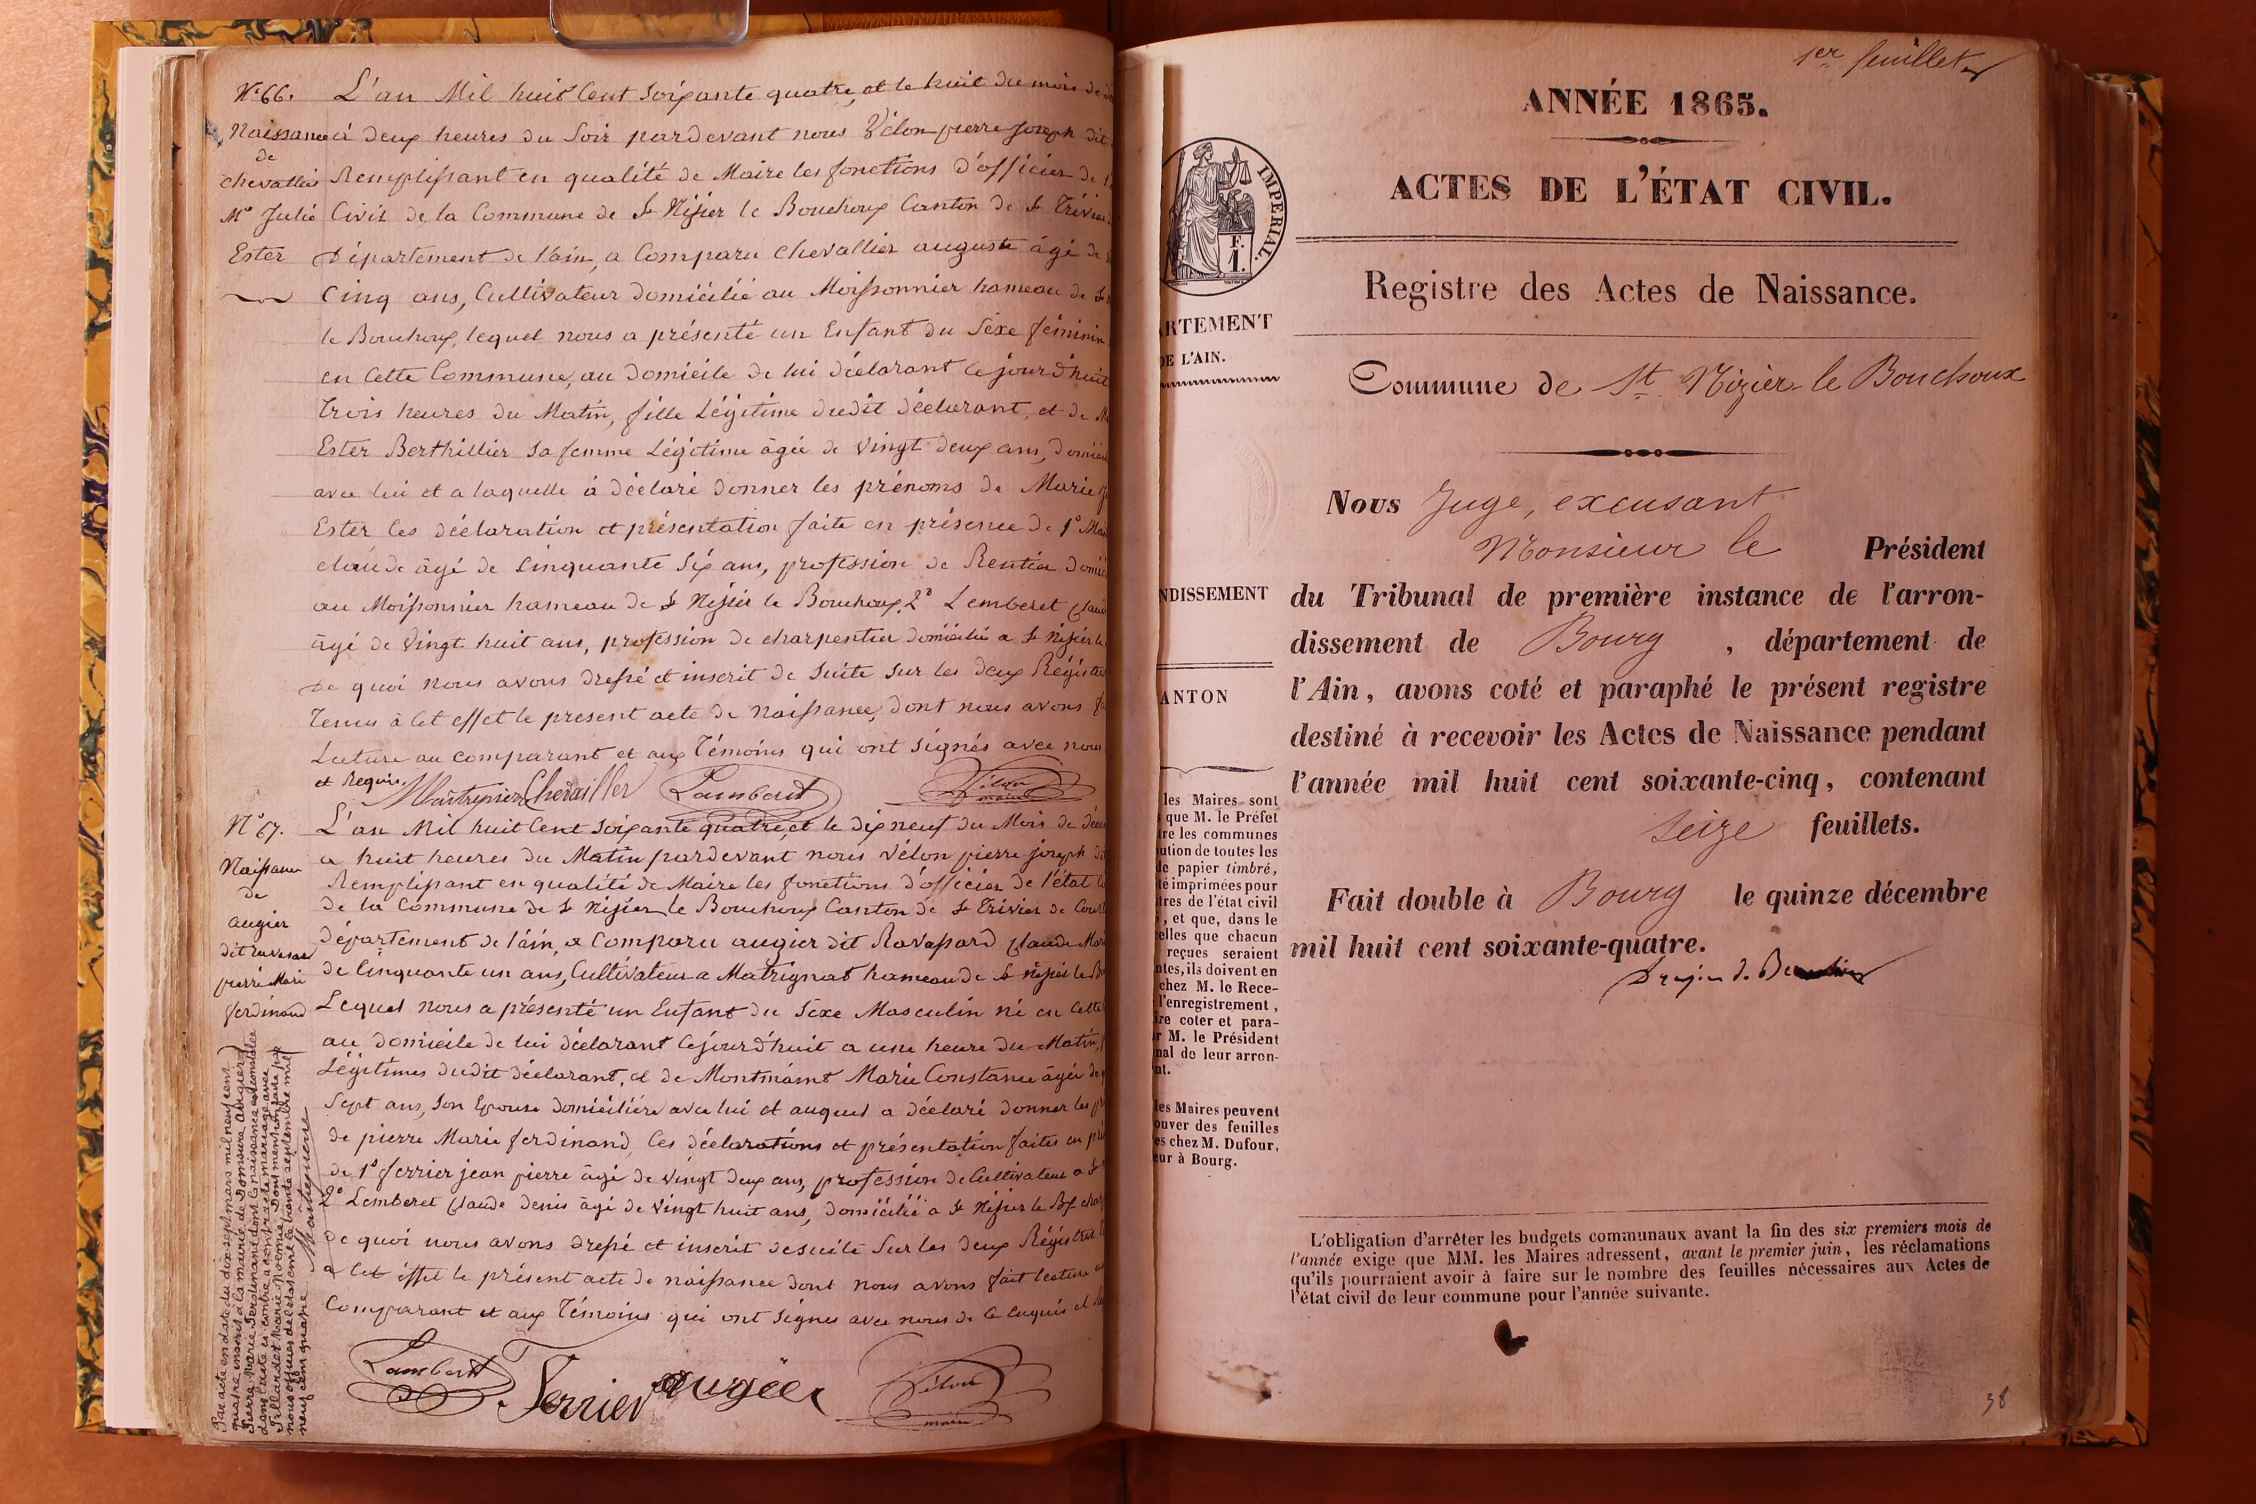 N° 66.
Naissance
de
chevallier
Me Julie
Ester
L'an Mil huit Cent soixante quatre, et le huit du mois de
à deux heures du Soir pardevant nous Vélon pierre Joseph dit
Remplissant en qualité de Maire les fonctions d'officier de
Civil de la Commune de St Nizier le Bouchoux Canton de St Trivier
Département de l'ain, a Comparu chevallier auguste âgé de
Cinq ans, Cultivateur domicilié au Moissonnier hameau de St
le Bouchoux, lequel nous a présenté un Enfant du Sexe féminin
en Cette Commune, au domicile de lui déclarant Cejourd'huit
Trois heures du Matin, fille Légitime dudit déclarant, et de
Ester Berthillier sa femme Légitime âgée de vingt deux ans,
avec lui et a laquelle à déclaré donner les prénoms de Marie
Ester Ces déclaration et présentation faite en présence de 1°
claude âgé de Cinquante Six ans, profession de Rentier
au Moissonnier hameau de St Nizier le Bouchoux. 2° Lemberet
âgé de Vingt huit ans, profession de charpentier domicilié a St Nizier le
De quoi nous avons dressé et inscrit de suite sur les deux
Tenus à Cet effet le present acte de naissance, dont nous avons
Lecture au comparant et aux Témoins qui ont signés avec nous
et Requis.
Maitrepierre Chevallier Lamberet Vélon
maire
N° 67.
Naissance
de
augier
dit ravassard
pierre Marie
ferdinand
L'an Mil huit Cent Soixante quatre, et le dix neuf du Mois de
a huit heures du Matin pardevant nous Vélon pierre joseph
Remplissant en qualité de Maire les fonctions d'officier de l'état
de la Commune de St Nizier le Bouchoux Canton de St Trivier de
département de l'ain, a Comparu augier dit Ravassard Claude
de Cinquante un ans, Cultivateur a Matrignat hameau de St nizier le
Lequel nous a présenté un Enfant du Sexe Masculin né en Cette
au domicile de lui déclarant Cejourd'huit a une heure du Matin,
Légitimes dudit déclarant, et de Marie Constance âgée de
Sept ans, son Epouse domiciliére avec lui et auquel a déclaré donner les
de pierre Marie ferdinand, Ces déclarations et présentation faites en
de 1° ferrier jean pierre âgé de vingt deux ans, profession de Cultivateur a St
2° Lemberet Claude denis âgé de vingt huit ans, domicilié a St Nizier le
De quoi nous avons dressé et inscrit desuite Sur les deux
a Cet effet le présent acte de naissance dont nous avons fait lecture
Comparant et aux Témoins qui ont signés avec nous de Ce Requis
Lamberet Ferrier augier Vélon
maire
Par acte en date du dix sept mars mil neuf cent
quatre inscrit à la mairie de Domsure Augier
Pierre Marie Ferdinand dont la naissance est constatée
dans l'acte ci-contre a contracté mariage avec
Marie Noémie. Dont mention faite par
nous officier de l'état civil le trente septembre mil
neuf cent quatre.
1er feuillet
ANNÉE 1865.
ACTES DE L'ÉTAT CIVIL.
Registre des Actes de Naissance.
Commune de St. Nizier le Bouchoux
IMPERIAL.
F.
1.
ARTEMENT
DE L'AIN.
NDISSEMENT
ANTON
Nous Juge, excusant
Monsieur le Président
du Tribunal de première instance de l'arron-
dissement de Bourg, département de
l'Ain, avons coté et paraphé le présent registre
destiné à recevoir les Actes de Naissance pendant
l'année mil huit cent soixante-cinq, contenant
Seize feuillets.
Fait double à Bourg le quinze décembre
mil huit cent soixante-quatre.
les Maires sont
que M. le Préfet
re les communes
ution de toutes les
e papier timbré,
é imprimées pour
tres de l'état civil
, et que, dans le
elles que chacun
reçues seraient
ntes, ils doivent en
chez M. le Rece-
l'enregistrement,
ire coter et para-
r M. le Président
nal de leur arron-
nt.
les Maires peuvent
ouver des feuilles
es chez M. Dufour,
eur à Bourg.
L'obligation d'arrêter les budgets communaux avant la fin des six premiers mois de
l'année exige que MM. les Maires adressent, avant le premier juin, les réclamations
qu'ils pourraient avoir à faire sur le nombre des feuilles nécessaires aux Actes de
l'état civil de leur commune pour l'année suivante.
38